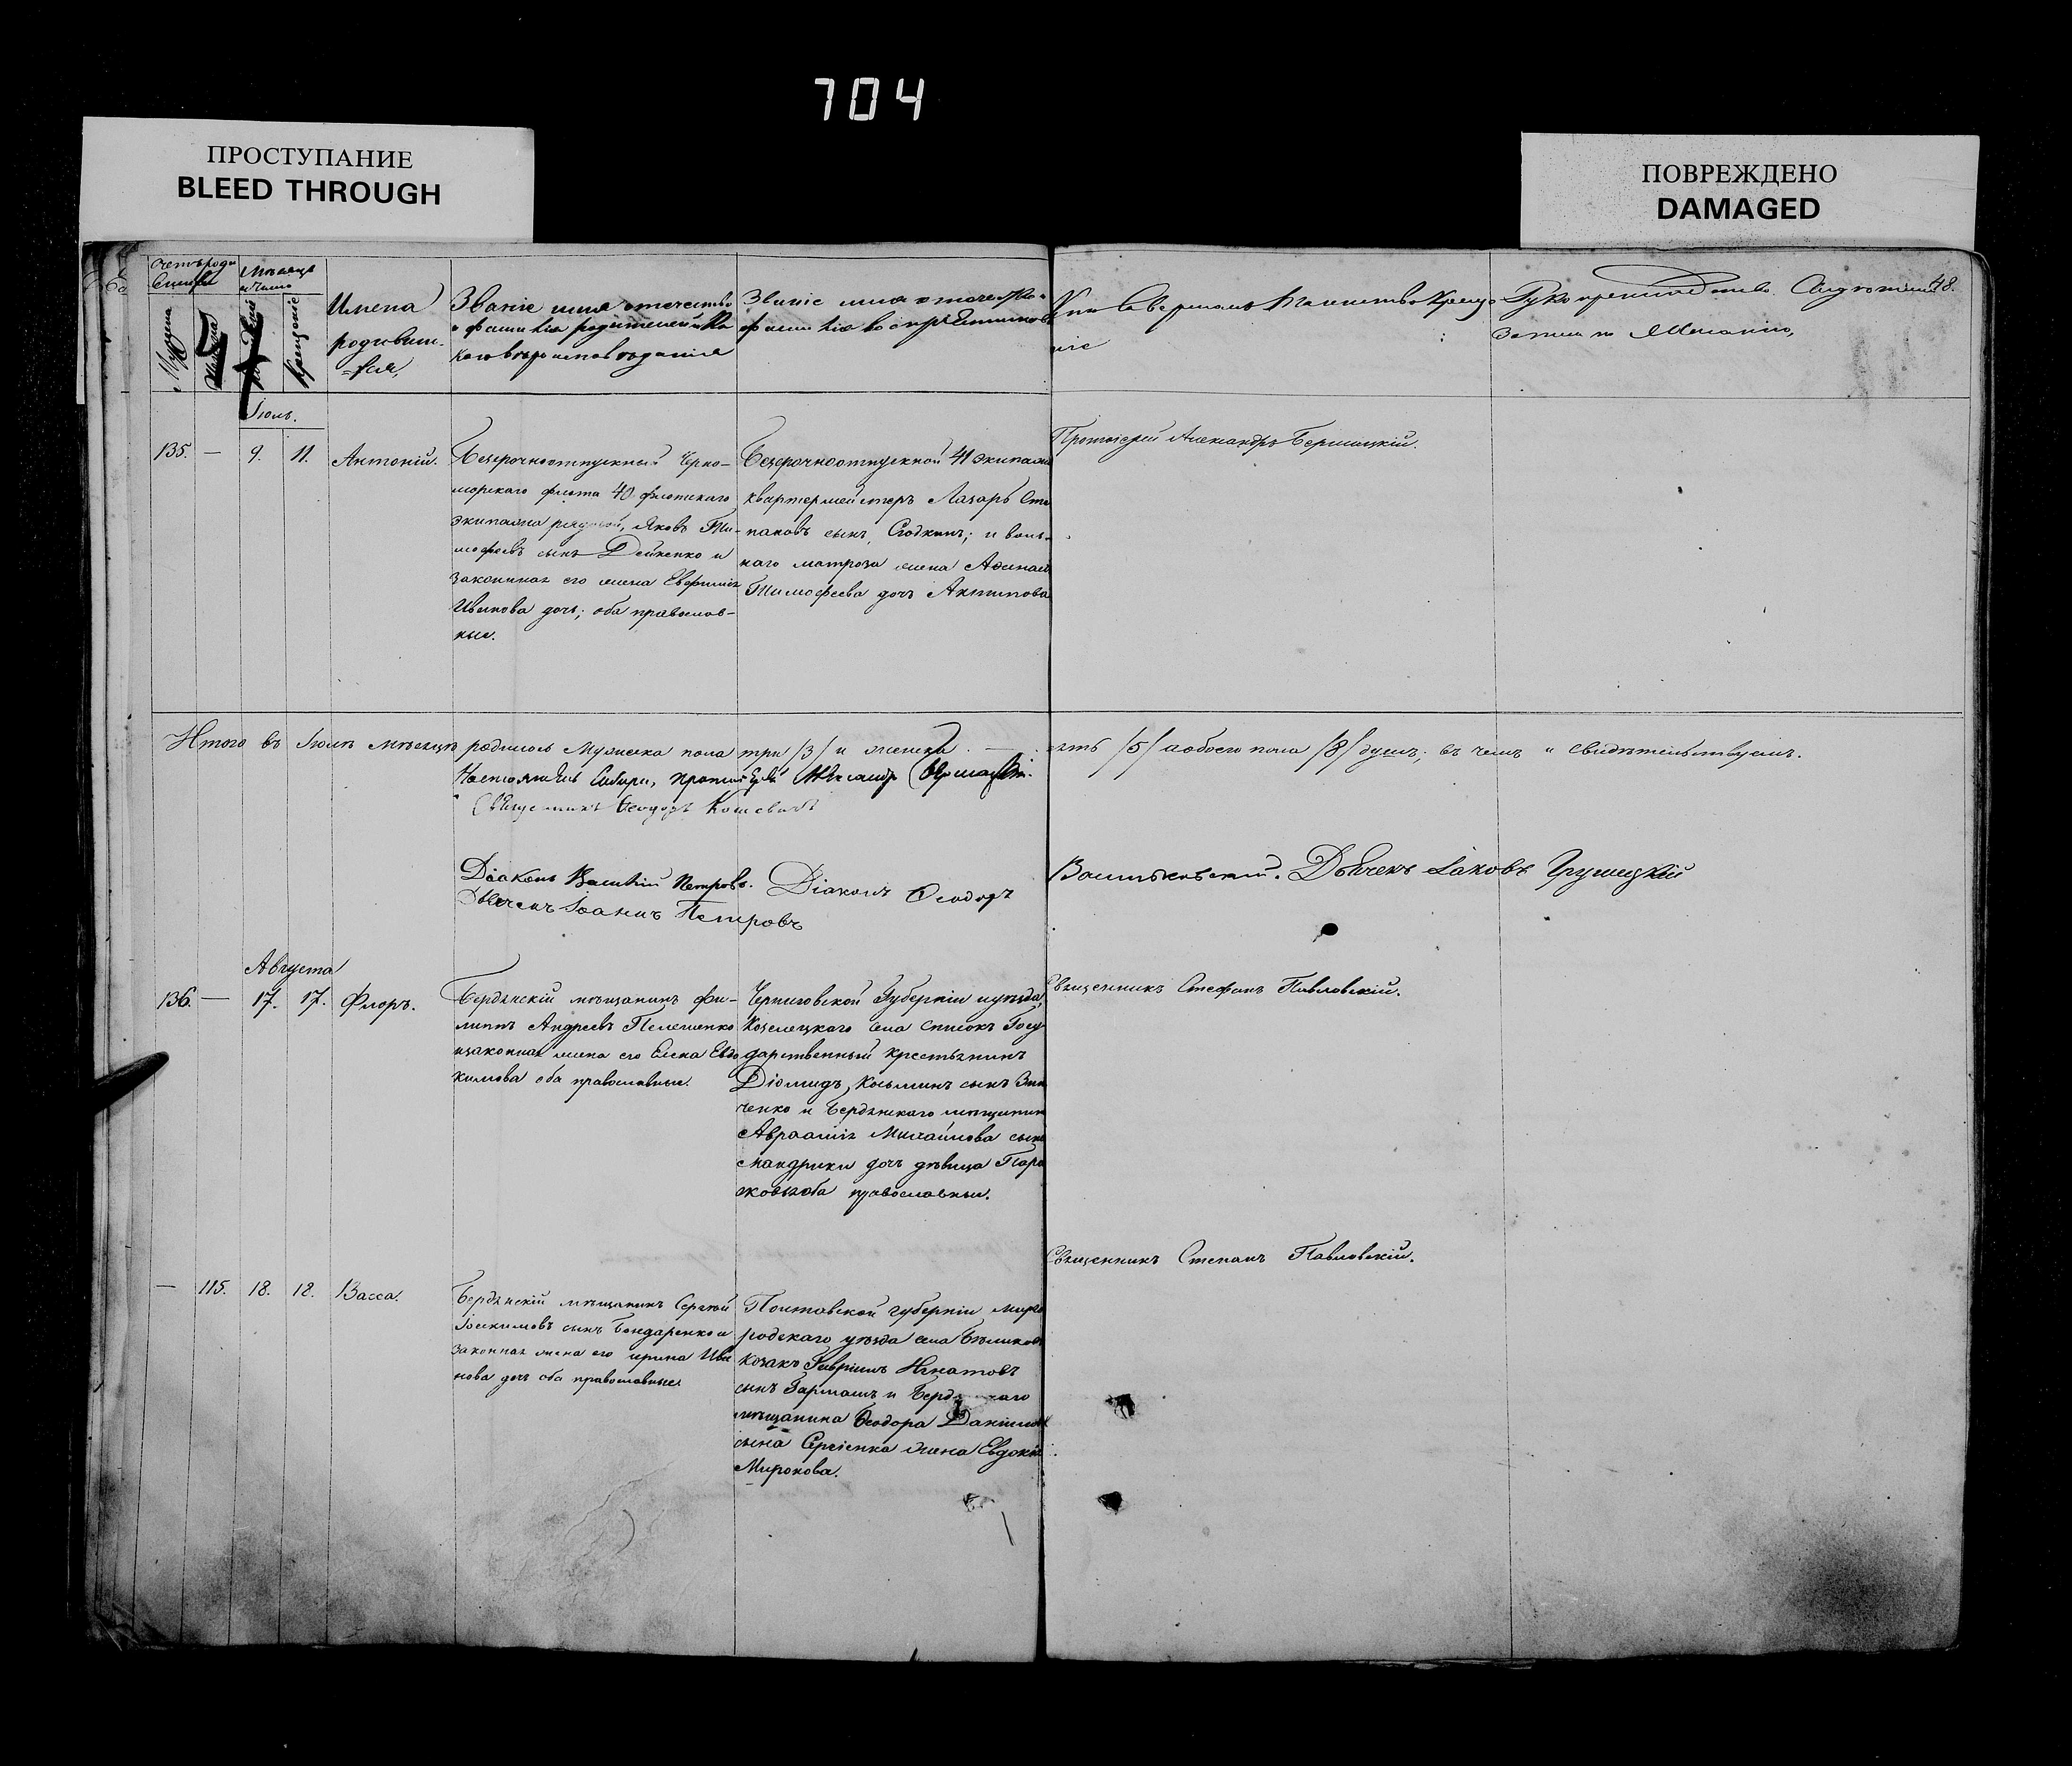 704
ПРОСТУПАНИЕ
BLEED THROUGH
ПОВРЕЖДЕНО
DAMAGED
48.
Счетъ роди
Мѣсяцъ
и число
Мужеска
Женска
Крещеніе
Имена
родивши-
=хся,
Званіе имя отчество
и фамилія родителей и ка
каго вѣроисповѣданія
Званіе имя отчество
фамилія воспріемниковъ
Кто совершалъ таинство Креще
ніе
Рукоприкладство
записи по желанію,
Іюль.
135. — 9. 11. Антоній.
Безсрочноотпускный Черно-
морскаго флота 40 флотскаго
экипажа рядовой, Яковъ Ти-
мофеевъ сынъ Дейненко и
законная его жена Евфимія
Иванова дочь; оба православ-
ные.
Безсрочноотпускной 41 экипажа
квартермейстеръ Лазарь Сте
пановъ сынъ, и воль-
наго матроза жена
Тимофеева дочь Антипова
Протоіерей Александръ
Итого въ Іюлѣ мѣсяцѣ родилось Мужеска пола три /3/ и женска — пять /5/ а обоего пола /8/ душъ; въ чемъ и свидѣтельствуемъ.
Настоятель Собора, Протоіерей Александръ
Священникъ Ѳеодоръ
Діаконъ Василій Петровъ. Діаконъ Ѳеодоръ Васильковскій. Дьячекъ Іаковъ Грушецкій
Дьячекъ Іоаннъ Петровъ
Августа
136. — 17. 17. Флоръ.
Бердянскій мѣщанинъ Фи-
липпъ Андреевъ Пелешенко
изаконная жена его Елена Евдо
кимова оба православные.
Черниговской Губерніи иуѣзда,
Козелецкаго села Списокъ Госу
дарственный крестьянинъ
Діомидъ Косьминъ сынъ Зин
ченко и Бердянскаго мѣщанина
Авраамія Михайлова сына
Мандрики дочь дѣвица Пара
сковія оба православные.
Священникъ Стефанъ Павловскій.
— 115. 18. 18. Васса.
Бердянскій мѣщанинъ Сергѣй
Іоакимовъ сынъ Бондаренко и
законная жена его ирина Ива
нова дочь оба православные.
Полтавской губерніи мирго
родскаго уѣзда села
козакъ Гавріилъ Игнатовъ
сынъ Гармашъ и
мѣщанина Ѳеодора Даніилова
сына Сергіенка жена Евдокія
Миронова.
Священникъ Степанъ Павловскій.